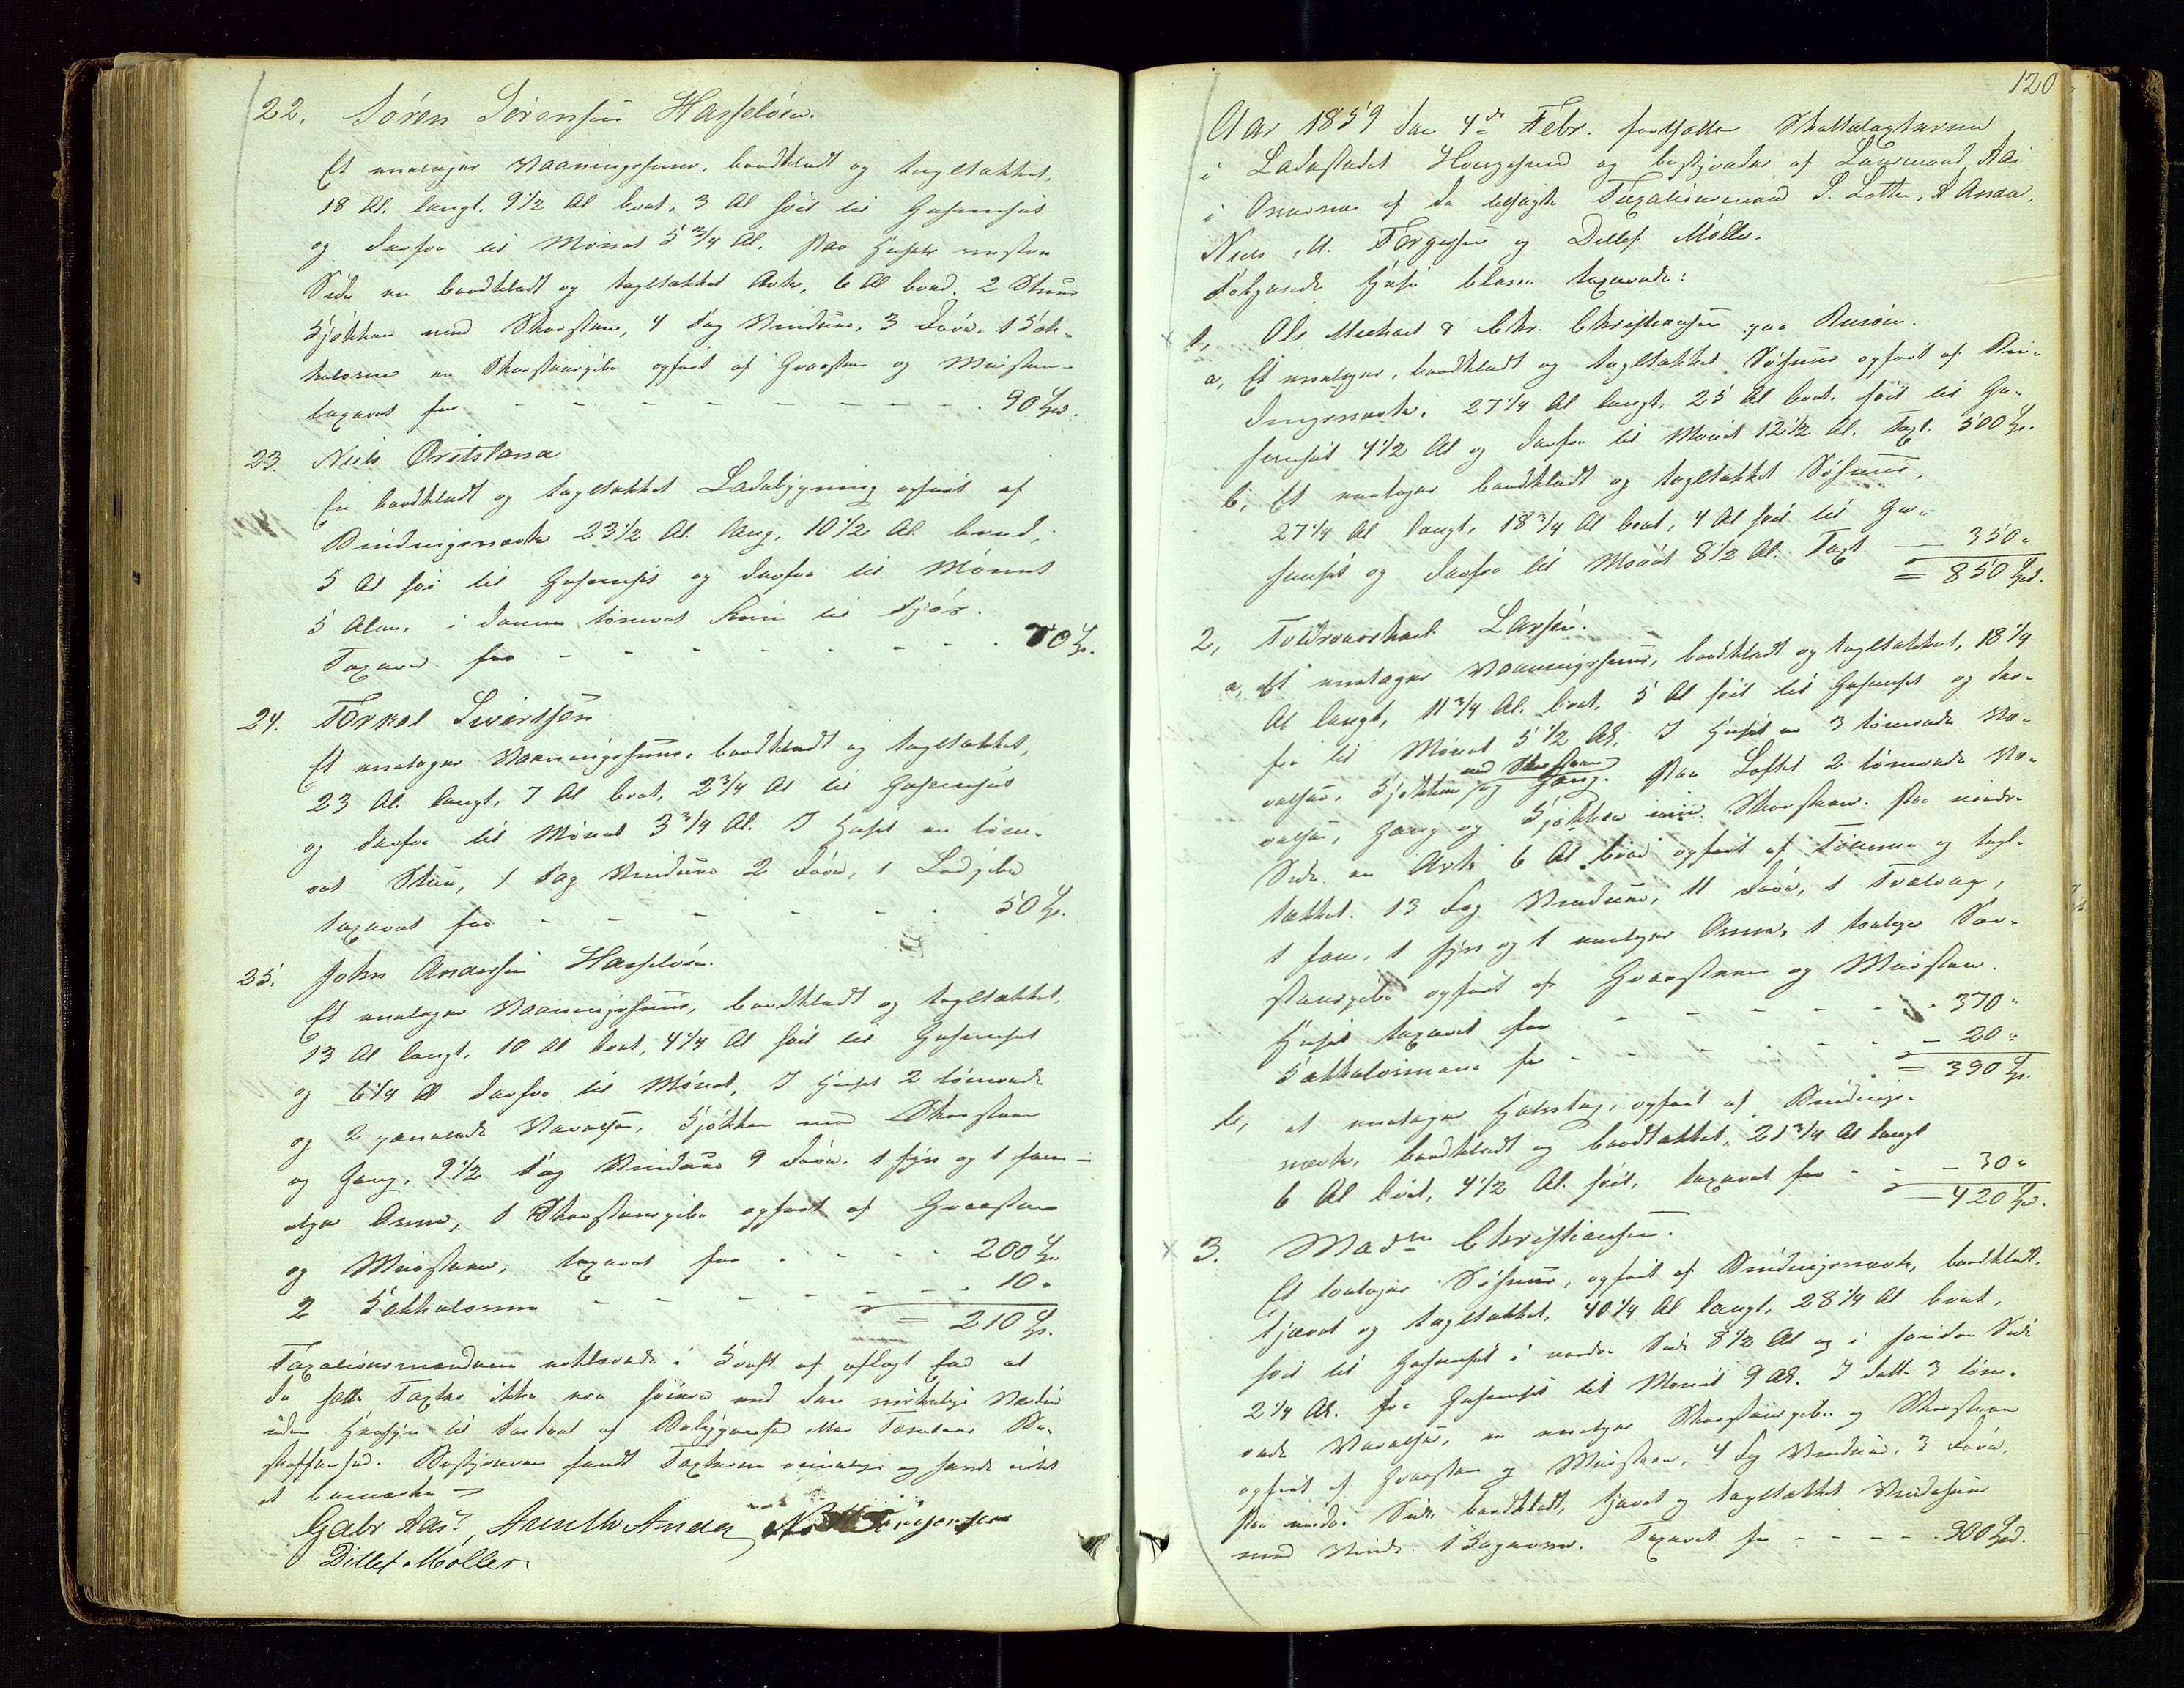 22. Sören Sörensen Hasseløen.
Et enetages Vaaningshuus, bordklædt og tagltækket,
18 Al. langt, 9 1/2 Al bredt, 3 Al høit til Gesimset
og derfra til Mønet 5 3/4 Al. Paa Husets vestre
Side en bordklædt og tagltækket Ark, 6 Al bred. 2 Stuer
Kjøkken med Skorsteen, 4 Fag Vinduer, 3 Døre, 1 Kak-
kelovn en Skorsteenspibe opført af Graasteen og Muursteen
taxeret for - - - - - - - 90 Spd.
23. Niels Øvitsland
En bordklædt og tagltækket Ladebygning opført af
Bindingsverk 23 1/2 Al. lang, 10 1/2 Al. bred,
5 Al høi til Gesimset og derfra til Mønet
5 Alen, i denne tømret Rum til Fjøs.
Taxeret for - - - - - - - 70 Sp.
24. Torkel Sivertsen
Et enetages Vaaningshuus, bordklædt og tagltækket,
23 Al. langt, 7 Al bredt, 2 3/4 Al til Gesimset
og derfra til Mønet 3 3/4 Al. I Huset en tøm-
ret Stue, 1 Fag Vinduer 2 Døre, 1 Lodpibe
taxeret for - - - - - - 50 Sp.
25. John Andersen Hasseløen.
Et enetages Vaaningshuus, bordklædt og tagltækket,
13 Al langt, 10 Al bredt, 4 1/4 Al høit til Gesimset
og 6 1/4 Al derfra til Mønet, I Huset 2 tømrede
og 2 panelede Værelser, Kjøkken med Skorsteen
og Gang, 9 1/2 Fag Vinduer 9 Døre. 1 høi og 1 een-
etges Ovn, 1 Skorsteenspibe opført af Graasteen
og Muursteen, taxeret for - - - - 200 Sp.
2 Kakkelovne - - - - - - 10 "
= 210 Sp.
Taxationsmændene erklærede i Kraft af aflagt Eed at
de satte Taxter ikke ere høiere end den virkelige Værdie
uden Hensyn til Fordeel af Beliggenhed eller Tomtens Be-
skaffenhed. Bestyreren fandt Taxterne rimelige og havde intet
at bemærke
Gabr Aas, Anenth Anda, N. M. Torgersen
Ditlef Møller
120
Aar 1859 den 4de Febr. fortsattes Skattetaxterne
i Ladestedet Haugesund og bestyredes af Lensmand Aas
i Overvær af de beskikkede Taxationsmænd S. Lothe, A Anda,
Niels M. Torgersen og Ditlef Møller.
Følgende Huse bleve taxerede:
x 1, Ole Michael & Chr. Christiansen paa Risøen.
a, Et enetages, bordklædt og tagltækket Søhuus opført af Bin-
dingsverk, 27 1/4 Al langt, 25 Al bredt, høit til Ge-
simset 4 1/2 Al og derfra til Mønet 12 1/2 Al. Taxt. 500 Sp.
b, Et enetages bordklædt og tagltækket Søhuus,
27 1/4 Al langt, 18 3/4 Al bredt, 4 Al høit til Ge-
simset og derfra til Mønet 8 1/2 Al. Taxt - 350 "
= 850 Spd.
2, Toldroerskarl Larsen.
a, Et enetages Vaaningshuus, bordklædt og tagltækket, 18 1/4
Al langt, 11 3/4 Al. bredt, 5 Al høit til Gesimset og der-
fra til Mønet 5 1/2 Al. I Huset er 3 tømrede Væ-
relser, Kjøkken med Skorsteen og Gang. Paa Loftet 2 tømrede Væ-
relser, Gang og Kjøkken med Skorsteen. Paa nordre
Side en Ark 6 Al. bred opført af Tømmer og tagl-
tækket. 13 Fag Vinduer, 11 Døre, 1 Tvæleag,
1 1 høi og 1 enetages Ovne, 1 Skor-
steenspibe opført af Graasteen og Muursteen.
Huset taxeret for - - - - - - 370 "
Kakkelovnene for - - - - - - 20 "
= 390 Sp.
b, et enetages opført af Bindings-
verk, bordklædt og bordtækket, 21 3/4 Al langt
6 Al bredt, 4 1/2 Al. høit, taxeret for - - - 30 "
- 420 Spd.
x 3. Madme Christiansen.
Et toetages Søhuus, opført af Bindingsverk, bordklædt,
tjæret og tagltækket, 40 1/4 Al langt, 28 1/4 Al bredt,
høit til Gesimset i nordre Side 8 1/2 Al og i søndre Side
2 1/4 Al. fra Gesimset til Mønet 9 Al. I dette 3 tøm-
rede Værelser, en enetges Skorsteenspibe og Skorsteen
opført af Graasteen og Muursteen, 4 Fag Vinduer, 3 Døre.
Paa nordre Side bordklædt, tjæret og tagltækket Vindehuus
med Vinde. 1 Bagerovn. Taxeret for - - - - 900 Spd.